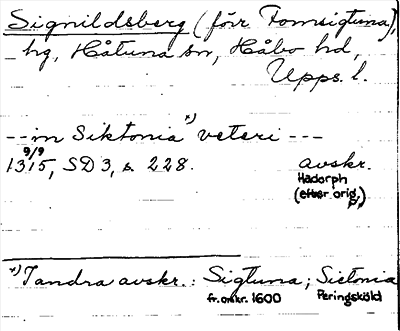 Signildsberg (förr Fornsigtuna),
hg, Håtuna sn, Håbo hd,
Upps. l.
--in Siktonia *) veteri ---
9/9
1315, SD 3, s. 228. avskr.
Hadorph
(efter orig.)
*) I andra avskr.: Sigtuna; Sictonia
fr. omkr. 1600 Peringskiöld